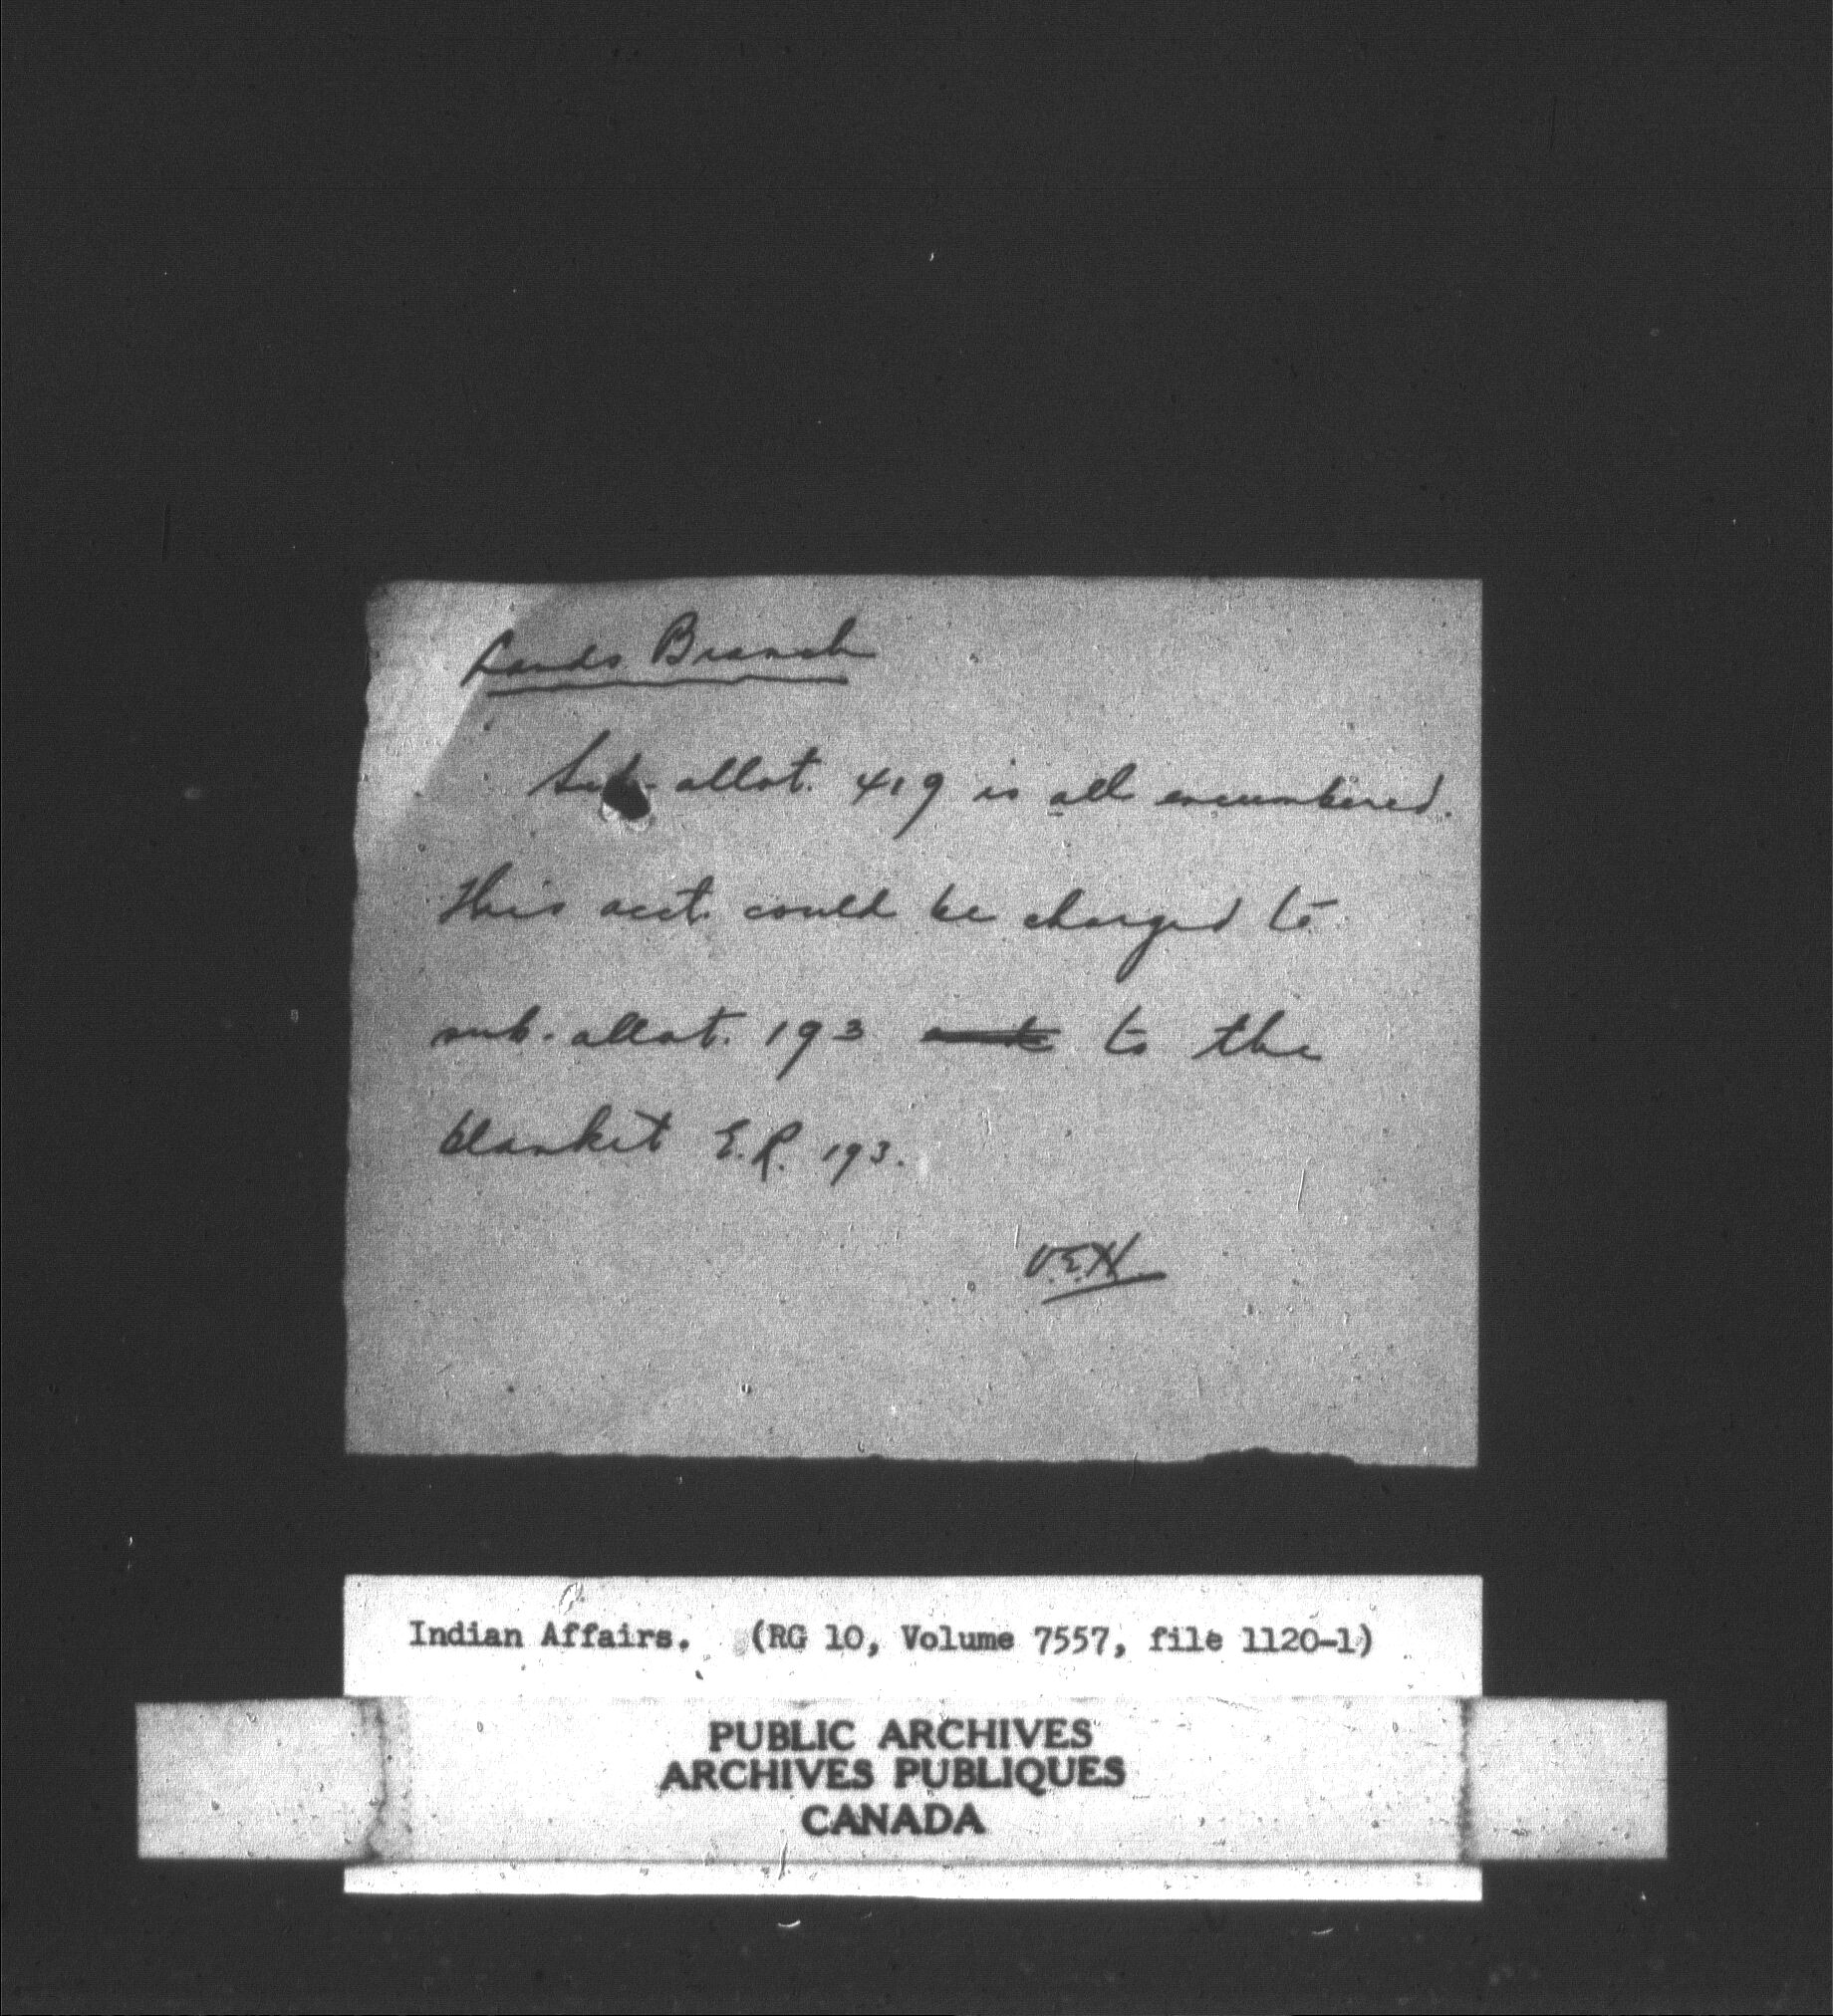 Lands Branch
Sub-allot. 419 is all encumbered.
This acct. could be charged to
sub-allot. 193 to the
blanket E.R. 193.
V.E.H.
Indian Affairs. (RG 10, Volume 7557, file 1120-1)
PUBLIC ARCHIVES
ARCHIVES PUBLIQUES
CANADA